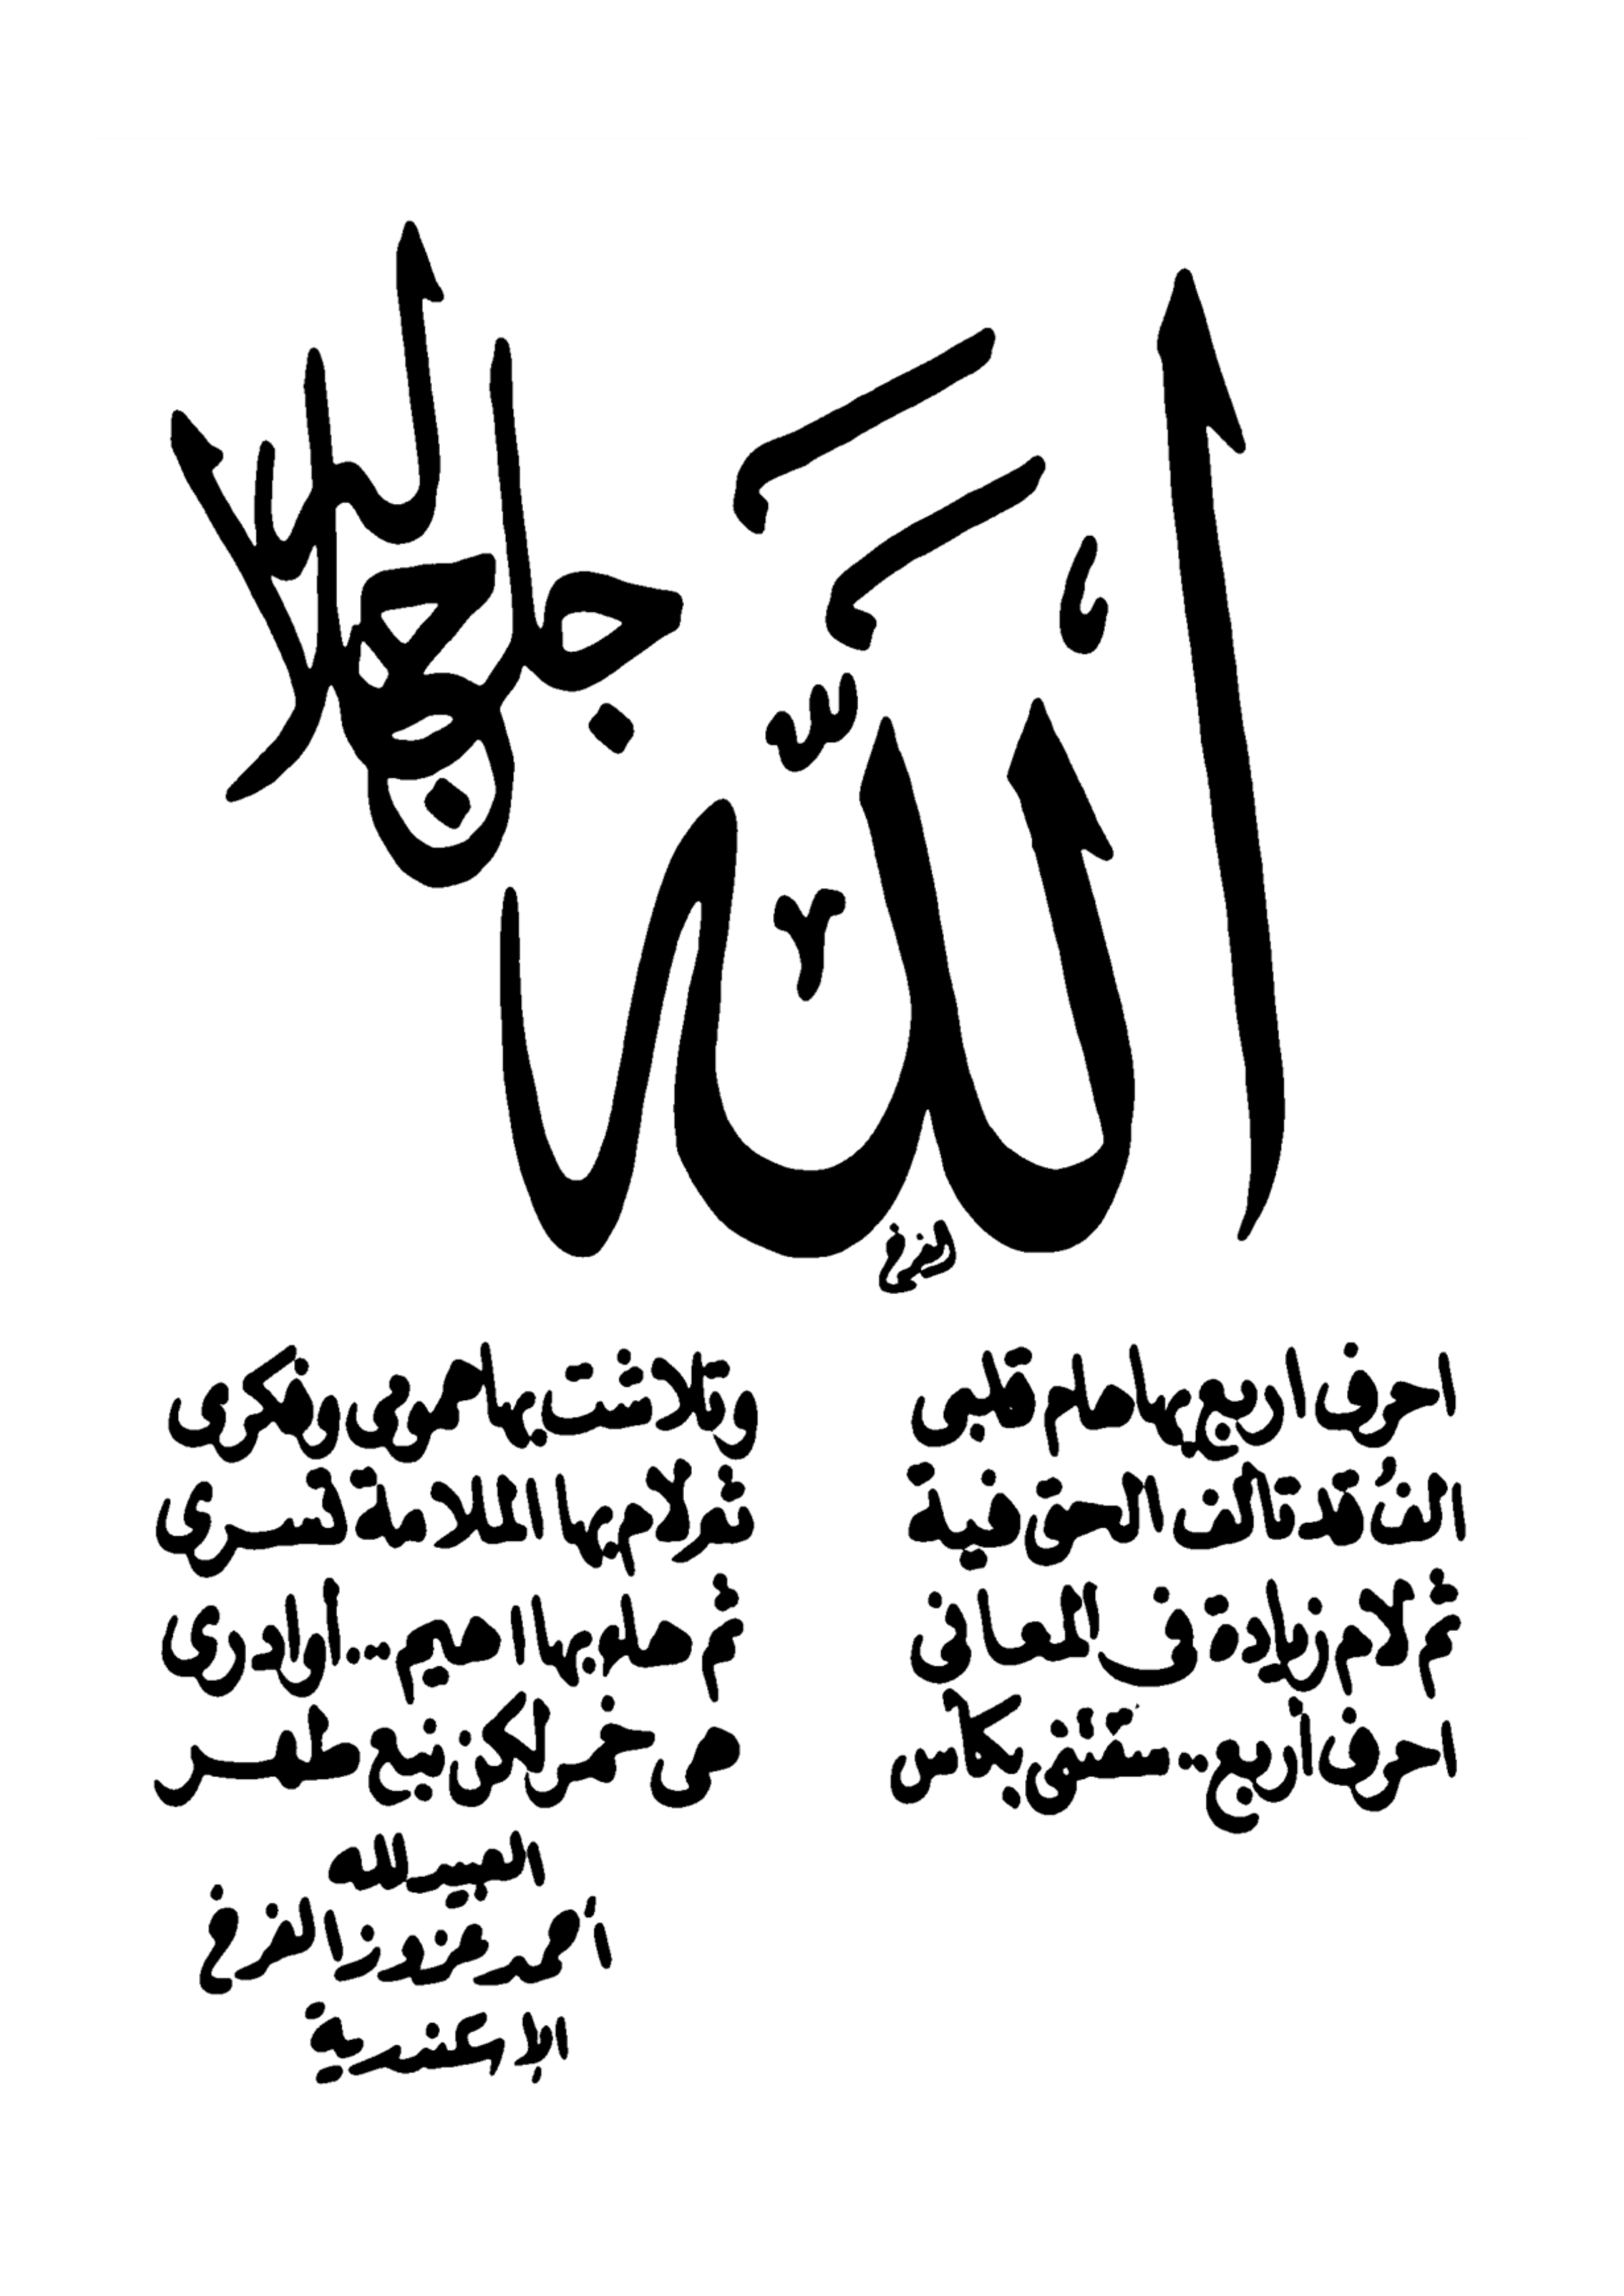 الله
جل جلاله
احرف اربع بها هام قلبى وتلاشت بها همومى وفكرى
الف قد تالف الحق فية ثم لام بها الملامة تسرى
ثم لام زيادة فى المعانى ثم هاء بها اهيم... أو ادرى
احرف أربع.. سقتنى بكاس من خمر لكن نبع طهر
العبيد لله
أحمد
الإسكندرية